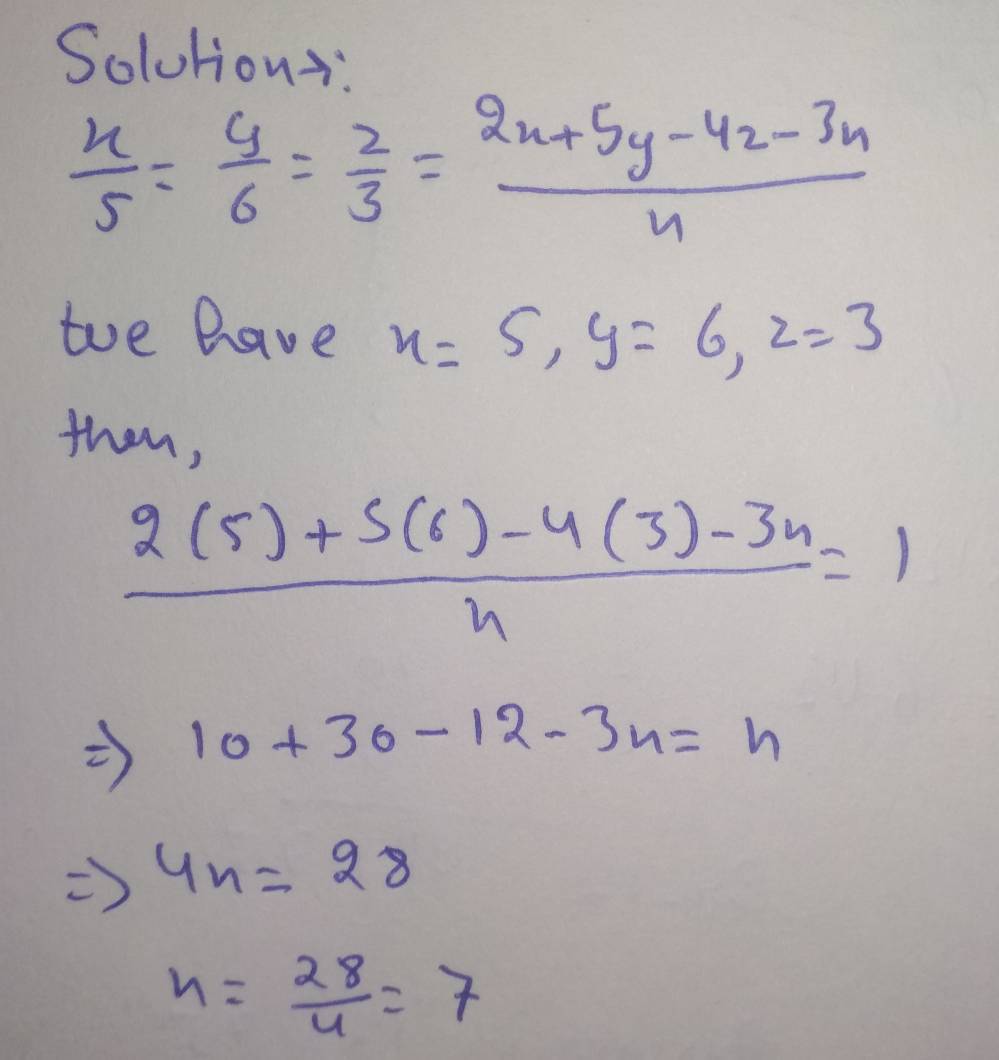 Solution:
x/5 = y/6 = z/3 = (2x+5y-4z-3n)/n
we have x= 5, y= 6, z=3
then,
(2(5)+5(6)-4(3)-3n)/n = 1
⇒ 10+30-12-3n= n
⇒ 4n= 28
n= 28/4 = 7